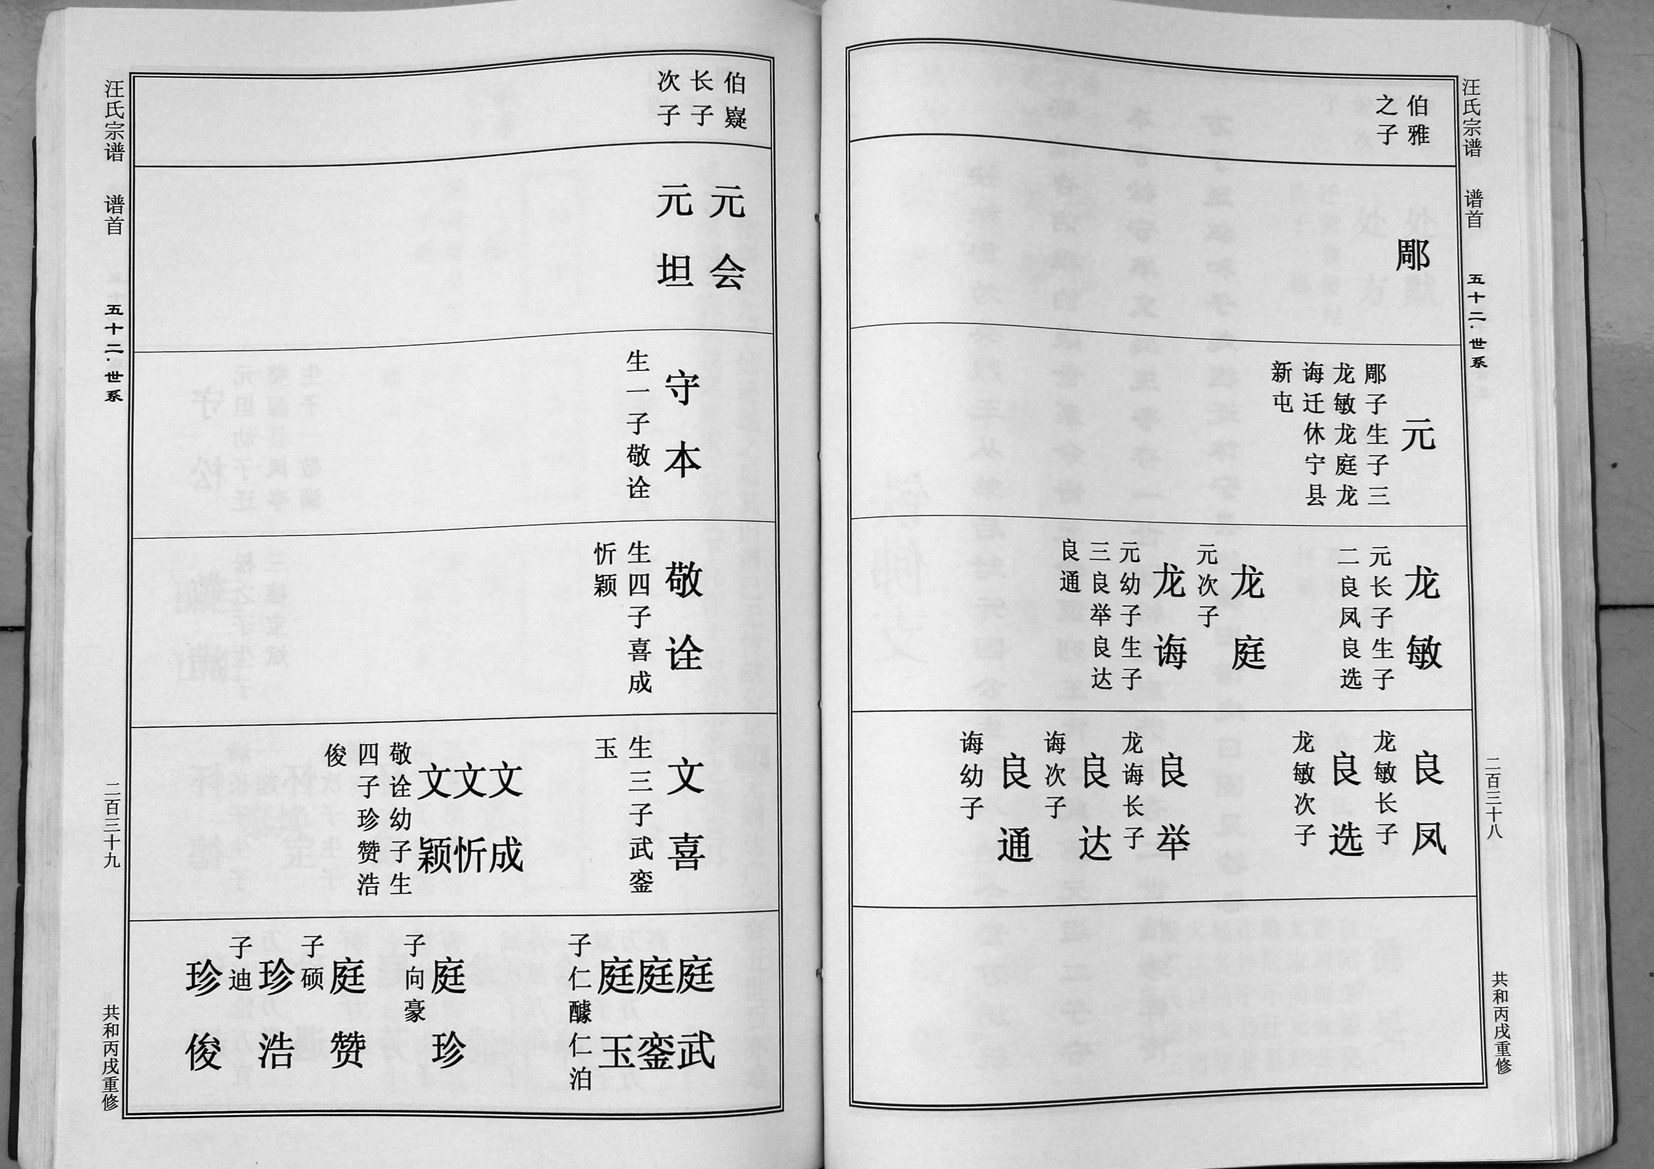 汪氏宗谱
谱首
五十二·世系
二百三十八
共和丙戌重修
伯雅
之子
郮
元
郮子生子三
龙敏龙庭龙
诲迁休宁县
新屯
龙敏
元长子生子
二良凤良选
龙庭
元次子
龙诲
元幼子生子
三良举良达
良通
良凤
龙敏长子
良选
龙敏次子
良举
龙诲长子
良达
诲次子
良通
诲幼子
汪氏宗谱
谱首
五十二·世系
二百三十九
共和丙戌重修
伯嶷
长子
次子
元会
元坦
守本
生一子敬诠
敬诠
生四子喜成
忻颖
文喜
生三子武銮
玉
文成
文忻
文颖
敬诠幼子生
四子珍赞浩
俊
庭武
庭銮
庭玉
子仁醵仁泊
庭珍
子向豪
庭赞
子硕
珍浩
子迪
珍俊